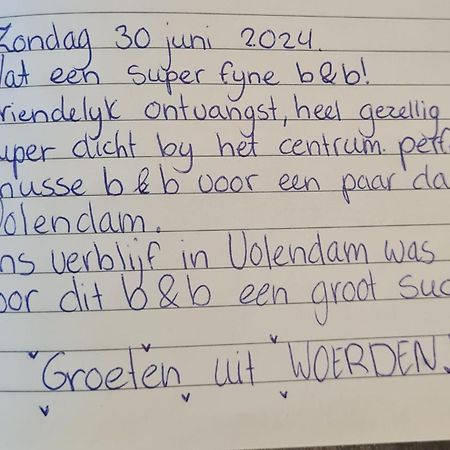 Zondag 30 juni 2024.
at een super fyne b&b!
riendelyk ontvangst, heel gezellig
uper dicht by het centrum. perf
nusse b&b voor een paar da
Volendam.
ns verblijf in Volendam was
oor dit b&b een groot suc
Groeten uit WOERDEN.